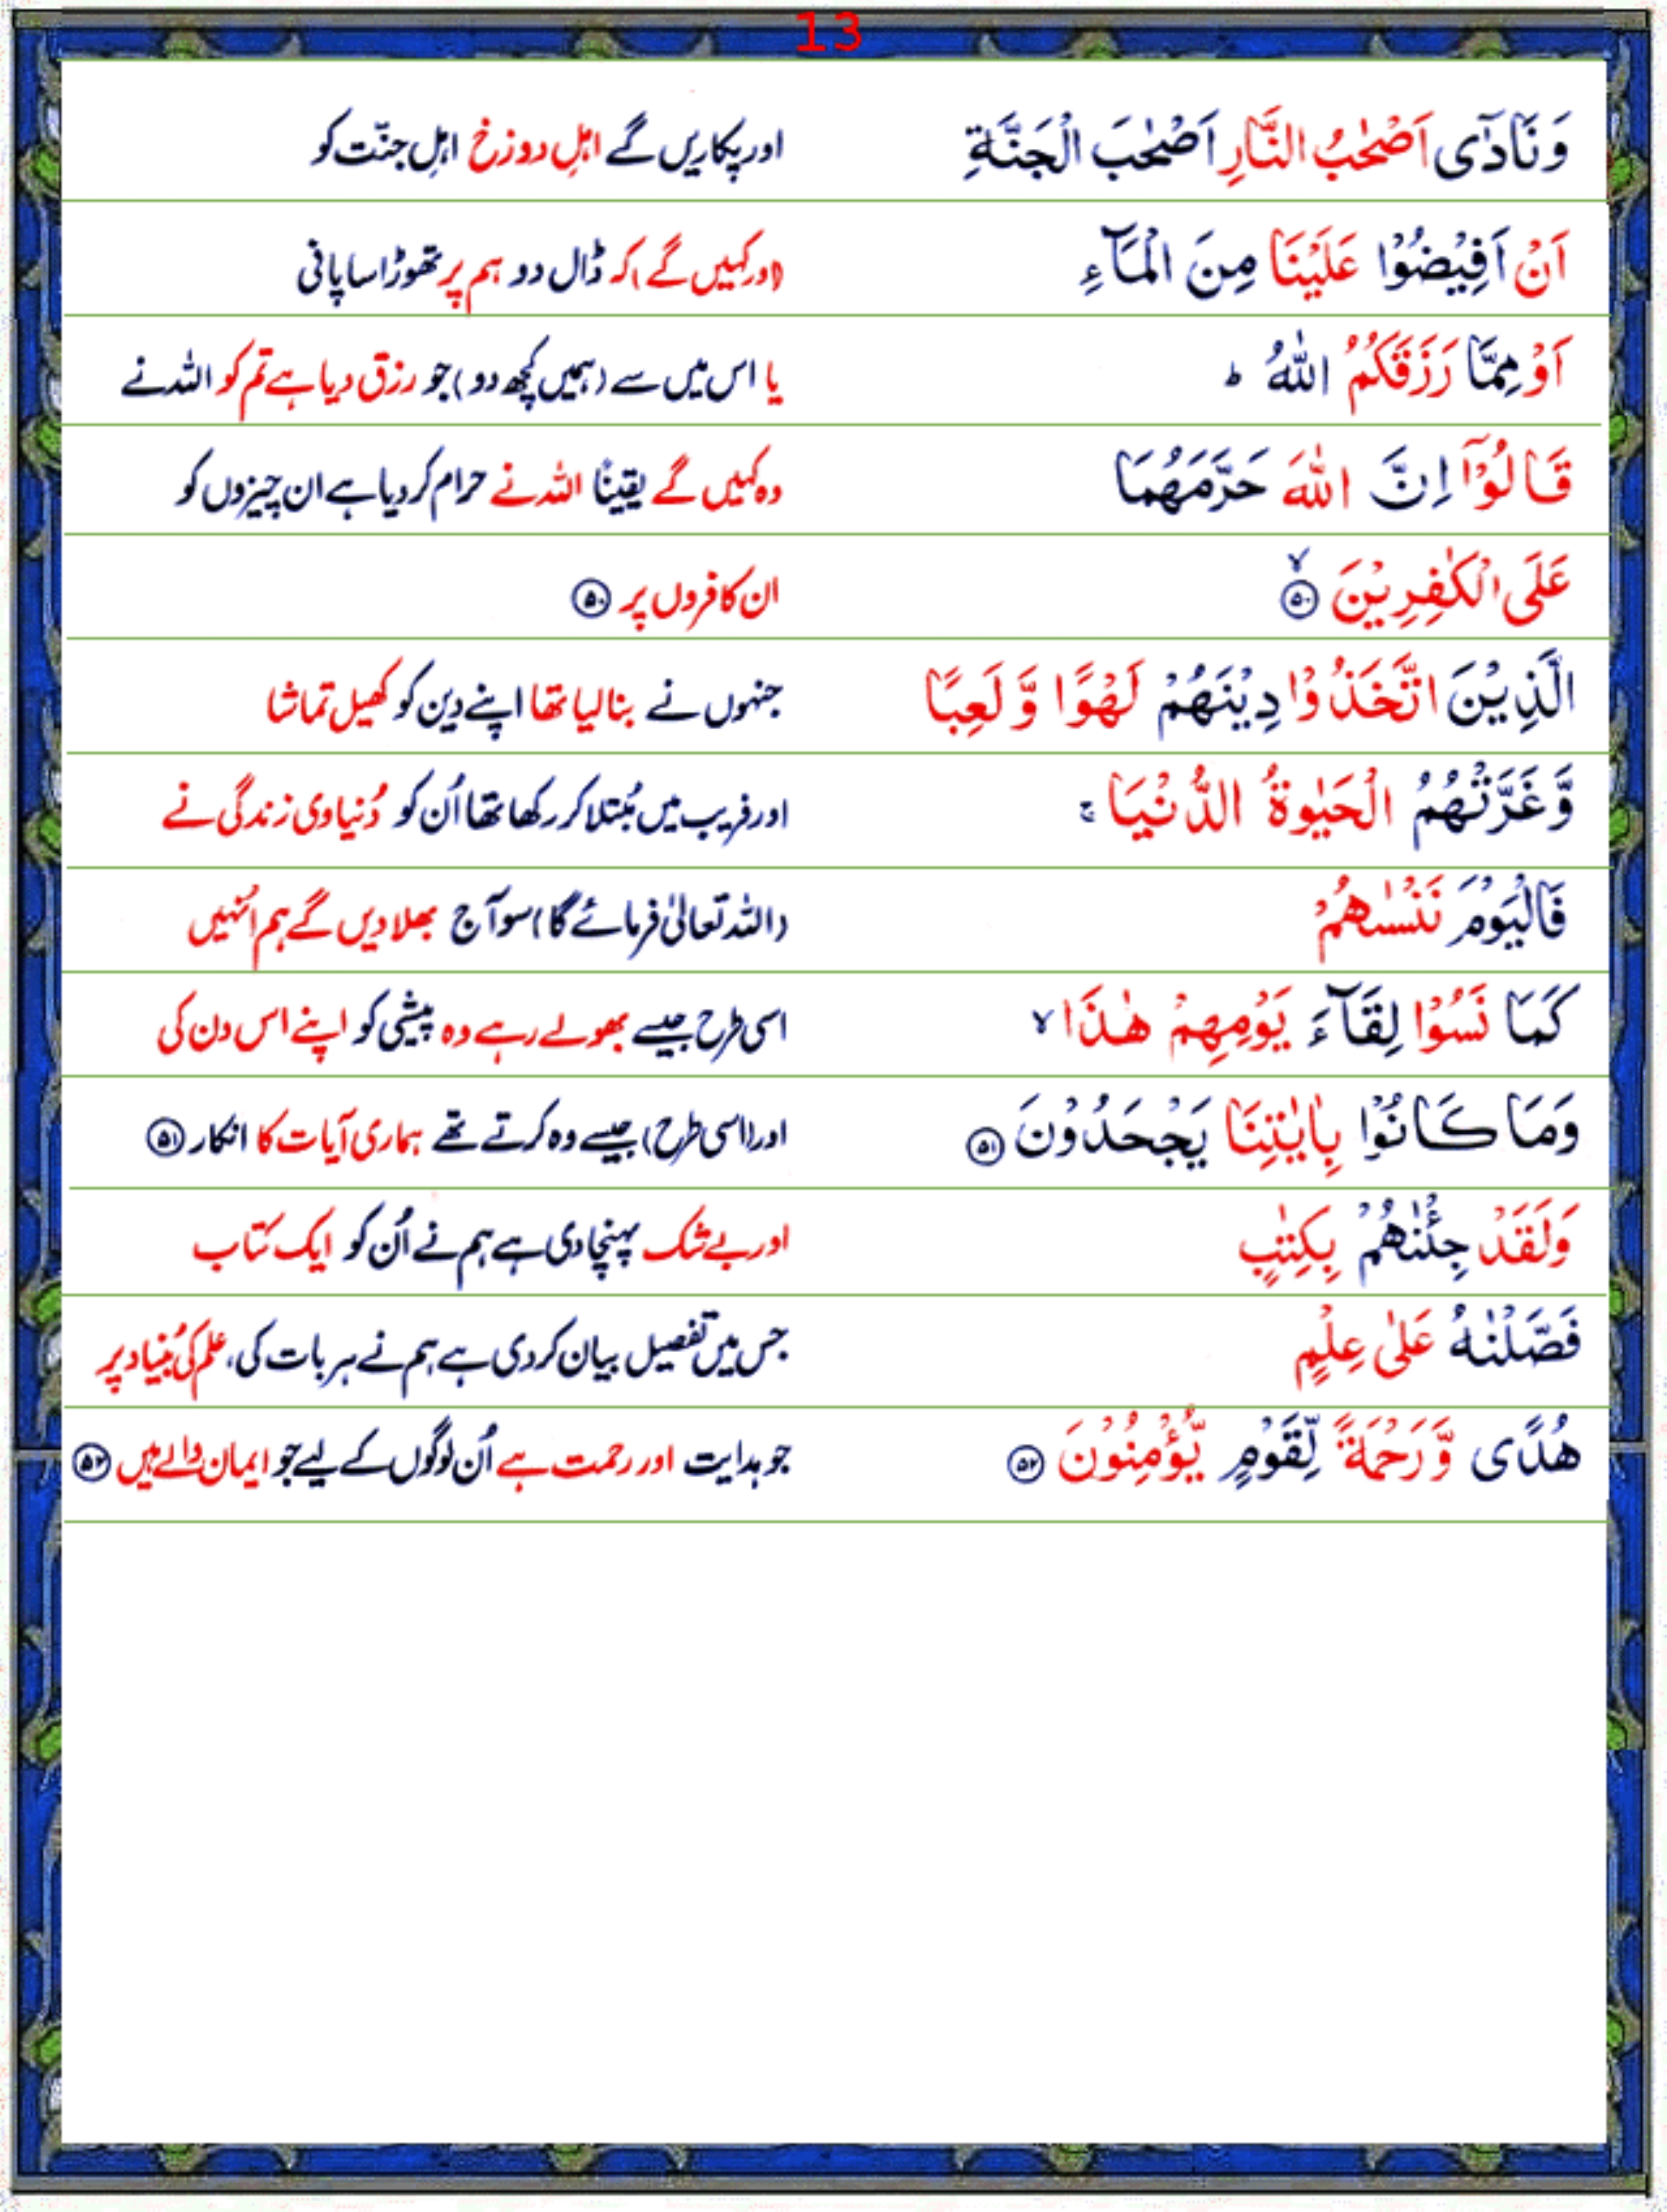 13
وَنَادٰٓى اَصْحٰبُ النَّارِ اَصْحٰبَ الْجَنَّةِ اور پکاریں گے اہلِ دوزخ اہلِ جنّت کو
اَنْ اَفِيْضُوْا عَلَيْنَا مِنَ الْمَآءِ (اور کہیں گے) کہ ڈال دو ہم پر تھوڑا سا پانی
اَوْ مِمَّا رَزَقَكُمُ اللّٰهُ ؕ یا اس میں سے (ہمیں کچھ دو) جو رزق دیا ہے تم کو اللہ نے
قَالُوْٓا اِنَّ اللّٰهَ حَرَّمَهُمَا وہ کہیں گے یقیناً اللہ نے حرام کر دیا ہے ان چیزوں کو
عَلَى الْكٰفِرِيْنَ ۙ ﴿۵۰﴾ ان کافروں پر ﴿۵۰﴾
الَّذِيْنَ اتَّخَذُوْا دِيْنَهُمْ لَهْوًا وَّ لَعِبًا جنہوں نے بنا لیا تھا اپنے دین کو کھیل تماشا
وَّغَرَّتْهُمُ الْحَيٰوةُ الدُّنْيَا ۚ اور فریب میں مُبتلا کر رکھا تھا اُن کو دُنیاوی زندگی نے
فَالْيَوْمَ نَنْسٰىهُمْ (اللہ تعالیٰ فرمائے گا) سو آج بھلا دیں گے ہم اُنہیں
كَمَا نَسُوْا لِقَآءَ يَوْمِهِمْ هٰذَا ۙ اسی طرح جیسے بھولے رہے وہ پیشی کو اپنے اس دن کی
وَمَا كَانُوْا بِاٰيٰتِنَا يَجْحَدُوْنَ ﴿۵۱﴾ اور (اسی طرح) جیسے وہ کرتے تھے ہماری آیات کا انکار ﴿۵۱﴾
وَلَقَدْ جِئْنٰهُمْ بِكِتٰبٍ اور بے شک پہنچا دی ہے ہم نے اُن کو ایک کتاب
فَصَّلْنٰهُ عَلٰى عِلْمٍ جس میں تفصیل بیان کر دی ہے ہم نے ہر بات کی، علم کی بُنیاد پر
هُدًى وَّرَحْمَةً لِّقَوْمٍ يُّؤْمِنُوْنَ ﴿۵۲﴾ جو ہدایت اور رحمت ہے اُن لوگوں کے لیے جو ایمان والے ہیں ﴿۵۲﴾